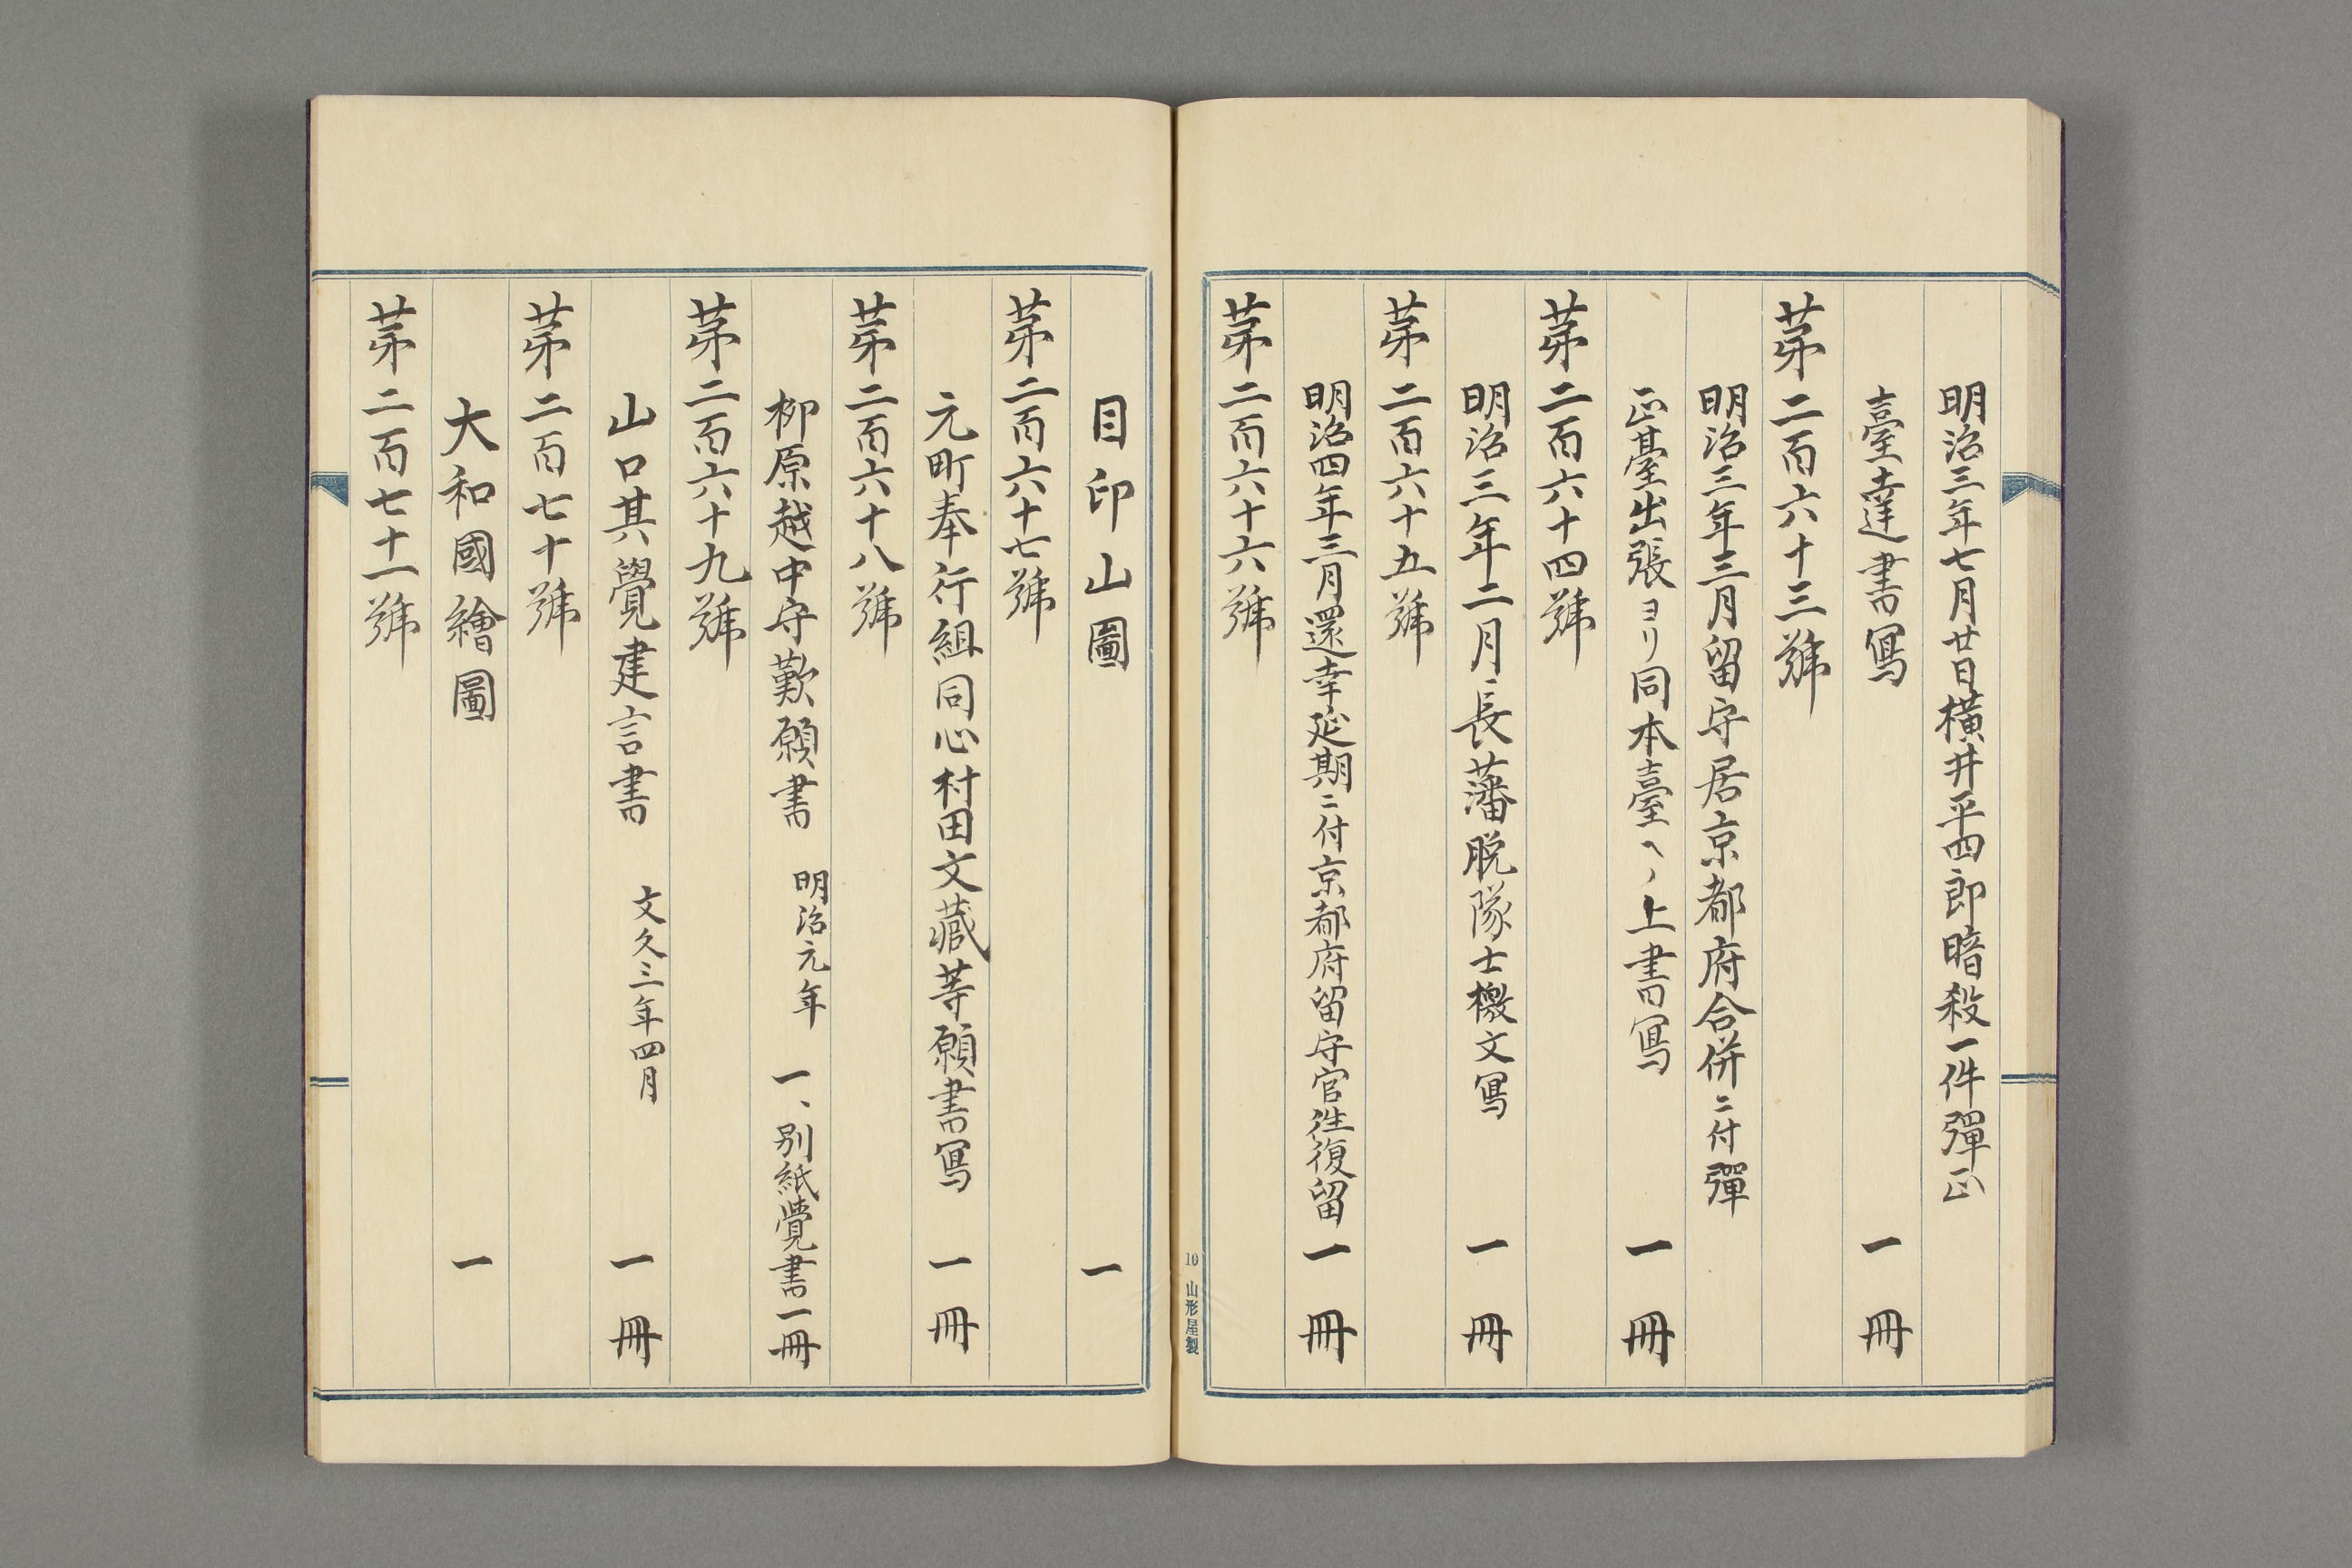 明治三年七月廿日横井平四郎暗殺一件彈正
臺達書寫　一冊
苐二百六十三號
明治三年三月留守居京都府合併ニ付彈
正臺出張ヨリ同本臺ヘノ上書寫　一冊
苐二百六十四號
明治三年二月長藩脱隊士檄文寫　一冊
苐二百六十五號
明治四年三月還幸延期ニ付京都府留守官往復留　一冊
苐二百六十六號
10 山形屋製
目印山圖　一
苐二百六十七號
元町奉行組同心村田文藏等願書寫　一冊
苐二百六十八號
柳原越中守歎願書　明治元年　一、別紙覺書一冊
苐二百六十九號
山口其覺建言書　文久三年四月　一冊
苐二百七十號
大和國繪圖　一
苐二百七十一號